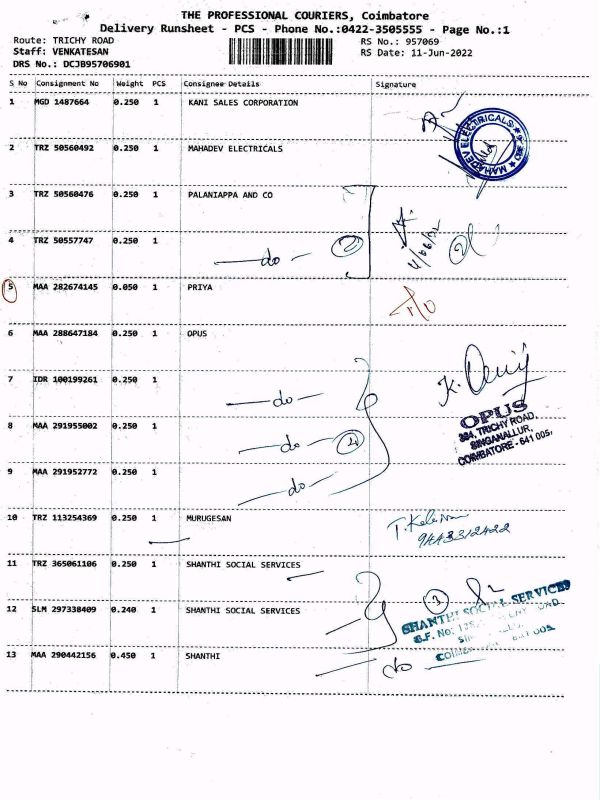 THE PROFESSIONAL COURIERS, Coimbatore
Delivery Runsheet - PCS - Phone No.:0422-3505555 - Page No.:1
Route: TRICHY ROAD
RS No.: 957069
Staff: VENKATESAN
RS Date: 11-Jun-2022
DRS No.: DCJB95706901
S No Consignment No Weight PCS Consignee Details Signature
1 MGD 1487664 0.250 1 KANI SALES CORPORATION
MAHADEV ELECTRICALS
2 TRZ 50560492 0.250 1 MAHADEV ELECTRICALS
3 TRZ 50560476 0.250 1 PALANIAPPA AND CO
4 TRZ 50557747 0.250 1
do 2 2
5 MAA 282674145 0.050 1 PRIYA
6 MAA 288647184 0.250 1 OPUS
7 IDR 100199261 0.250 1
do
OPUS
384, TRICHY ROAD,
SINGANALLUR,
COIMBATORE - 641 005.
8 MAA 291955002 0.250 1
do 4
9 MAA 291952772 0.250 1
do
10 TRZ 113254369 0.250 1 MURUGESAN
11 TRZ 365061106 0.250 1 SHANTHI SOCIAL SERVICES
3
12 SLM 297338409 0.240 1 SHANTHI SOCIAL SERVICES
SHANTHI SOCIAL SERVICES
S.F. No:
13 MAA 290442156 0.450 1 SHANTHI
do